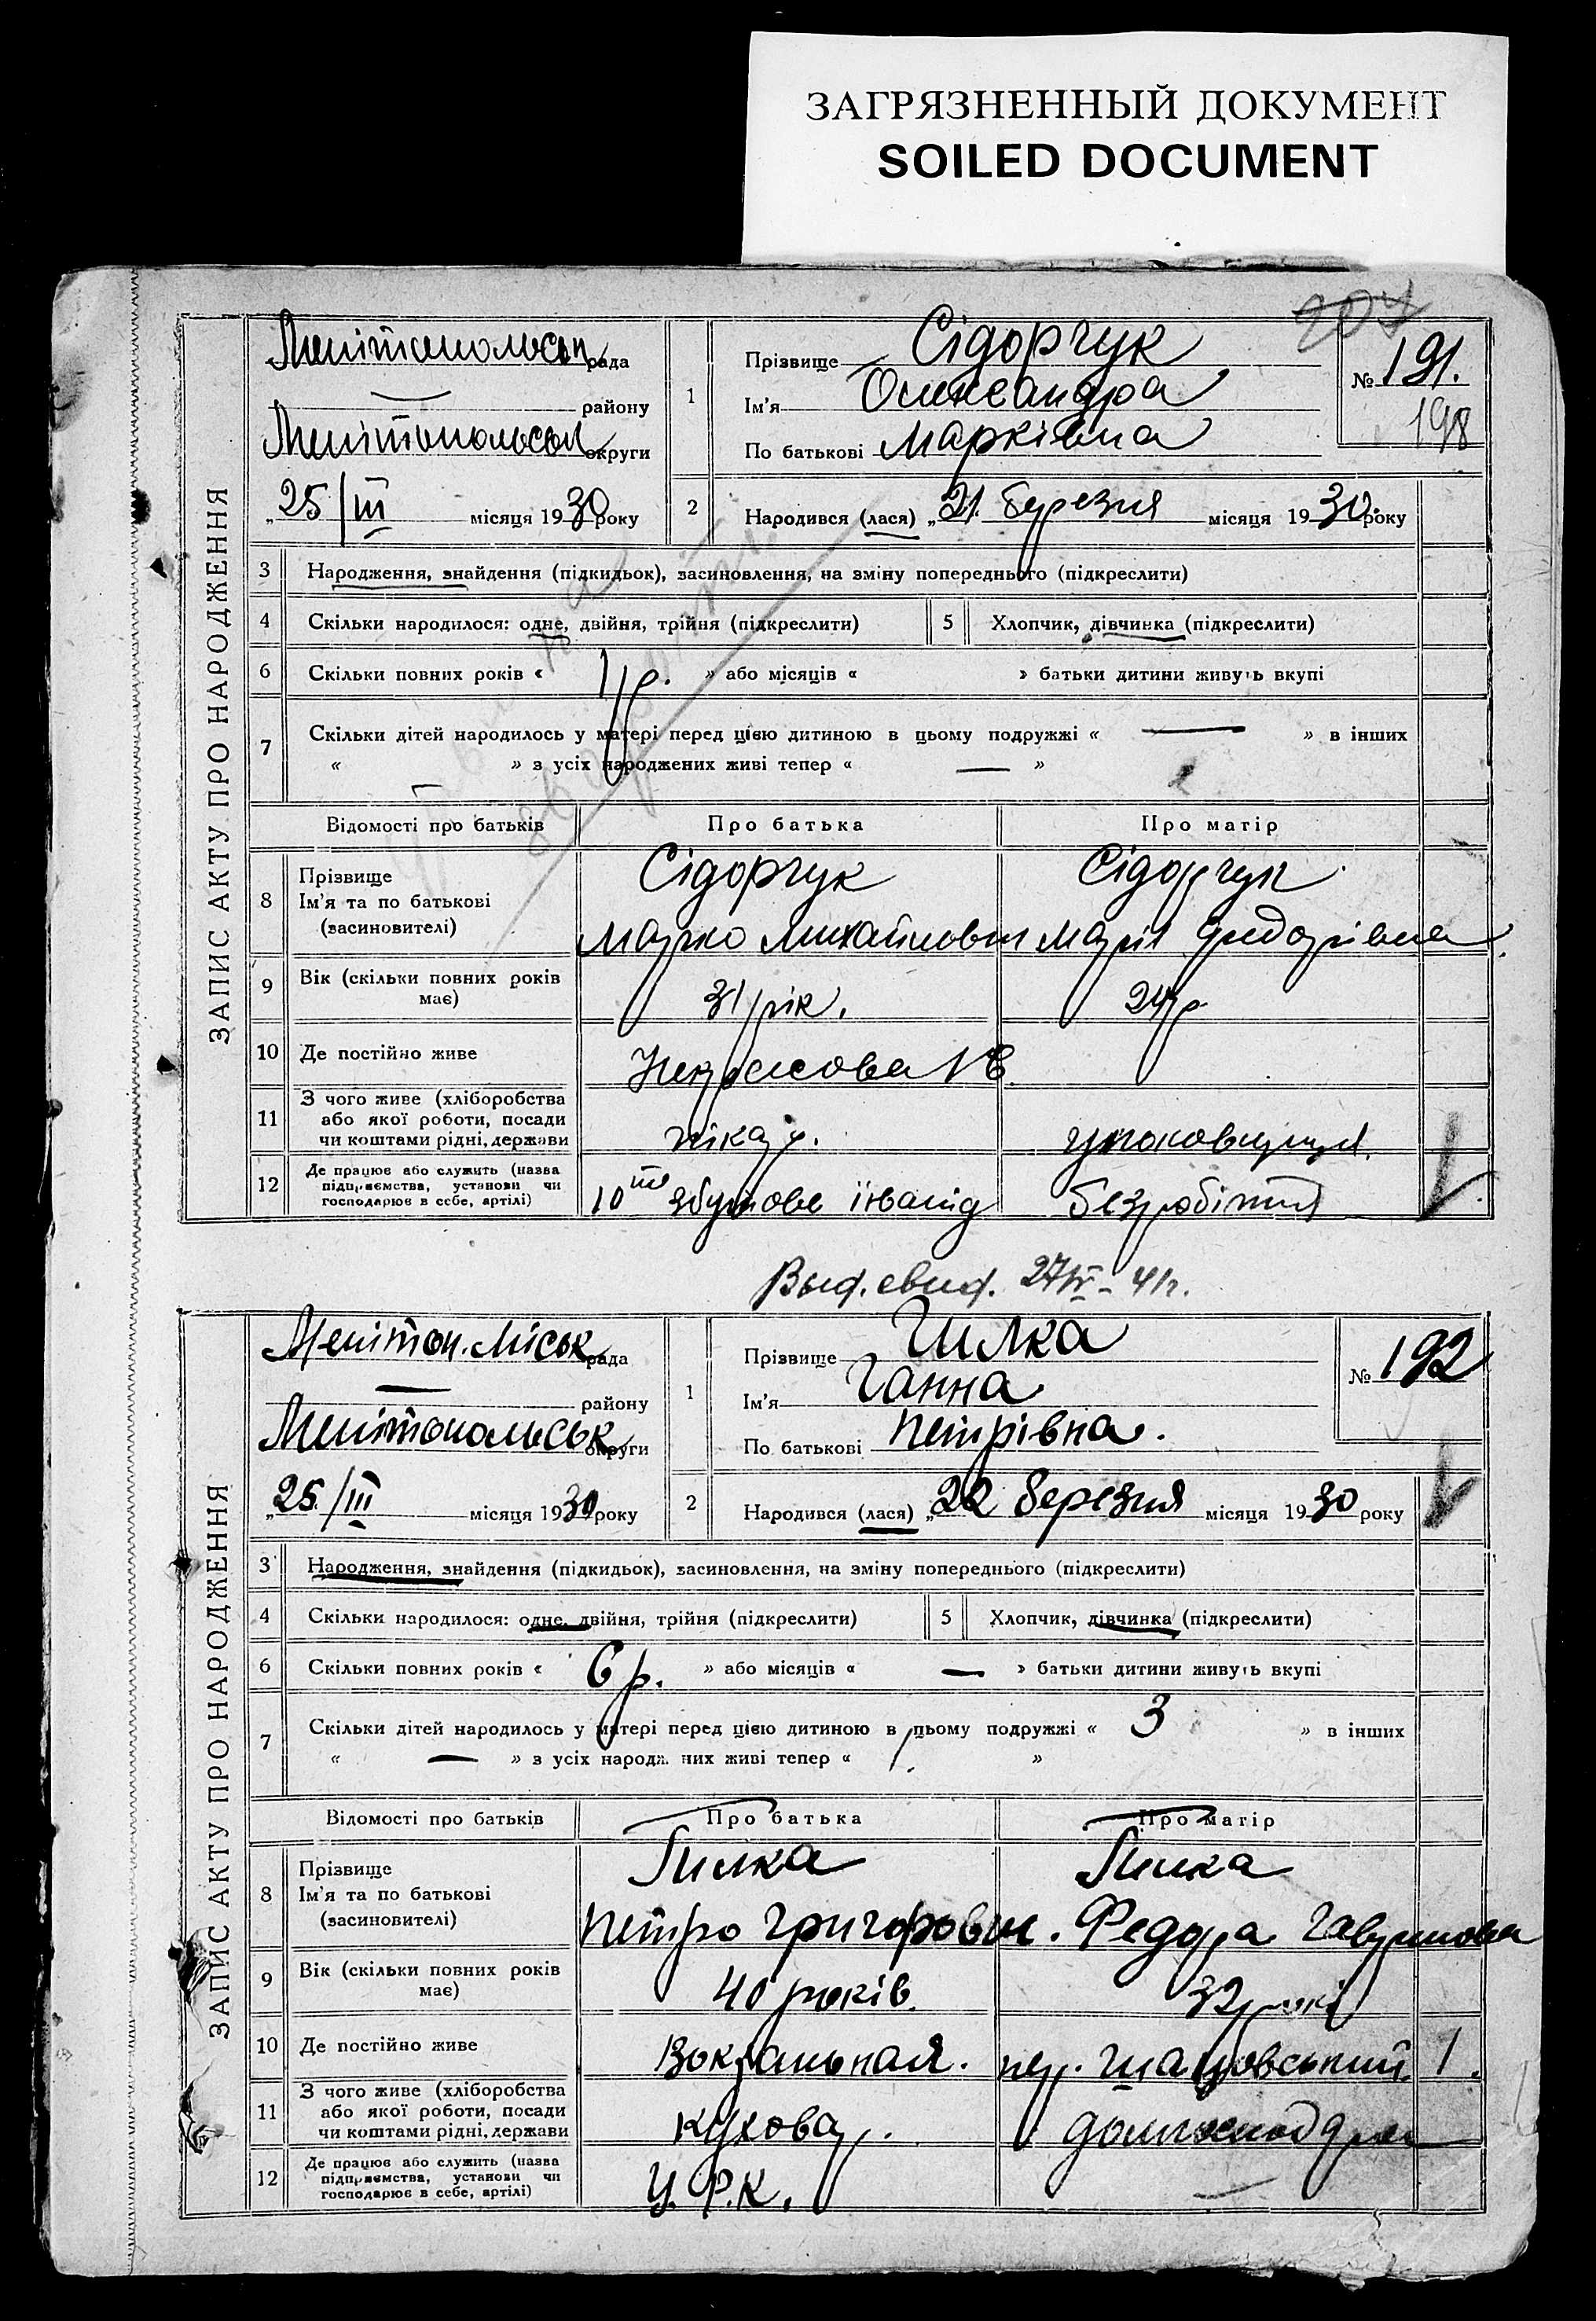 ЗАГРЯЗНЕННЫЙ ДОКУМЕНТ
SOILED DOCUMENT
ЗАПИС АКТУ ПРО НАРОДЖЕННЯ
Мелітопольськ рада
району
Мелітопольськ округи
„25/III місяця 1930 року
1 Прізвище Сідорчук
Ім'я Олександра
По батькові Марківна
№ 191.
198
2 Народився (лася) „21. березня місяця 1930. року
3 Народження, знайдення (підкидьок), засиновлення, на зміну попереднього (підкреслити)
4 Скільки народилося: одне, двійня, трійня (підкреслити) 5 Хлопчик, дівчинка (підкреслити)
6 Скільки повних років « 1 р. » або місяців « » батьки дитини живуть вкупі
7 Скільки дітей народилось у матері перед цією дитиною в цьому подружжі « — » в інших
« — » з усіх народжених живі тепер « — »
Відомості про батьків Про батька Про матір
8 Прізвище Сідорчук Сідорчук
Ім'я та по батькові
(засиновителі) Марко Михайлович Марія
9 Вік (скільки повних років має) 31 рік. 24 р
10 Де постійно живе Некрасова
11 З чого живе (хліборобства
або якої роботи, посади
чи коштами рідні, держави пікар.
12 Де працює або служить (назва
підприємства, установи чи
господарює в себе, артілі) безробітня
Выд. свид. 27/IV - 41 г.
ЗАПИС АКТУ ПРО НАРОДЖЕННЯ
Меліт�оп. міськ рада
району
Мелітопольськ округи
„25/III місяця 1930 року
1 Прізвище Гилка
Ім'я Ганна
По батькові Петрівна.
№ 192
2 Народився (лася) „22 березня місяця 1930 року
3 Народження, знайдення (підкидьок), засиновлення, на зміну попереднього (підкреслити)
4 Скільки народилося: одне, двійня, трійня (підкреслити) 5 Хлопчик, дівчинка (підкреслити)
6 Скільки повних років « 6 р. » або місяців « — » батьки дитини живуть вкупі
7 Скільки дітей народилось у матері перед цією дитиною в цьому подружжі « 3 » в інших
« — » з усіх народж них живі тепер « 1. »
Відомості про батьків Про батька Про матір
8 Прізвище Гилка Гилка
Ім'я та по батькові
(засиновителі) Петро Григорович. Федора
9 Вік (скільки повних років має) 40 років. 32 роки
10 Де постійно живе Вокзальная. пер. 1.
11 З чого живе (хліборобства
або якої роботи, посади
чи коштами рідні, держави куховар.
12 Де працює або служить (назва
підприємства, установи чи
господарює в себе, артілі) Ц.Р.К. —